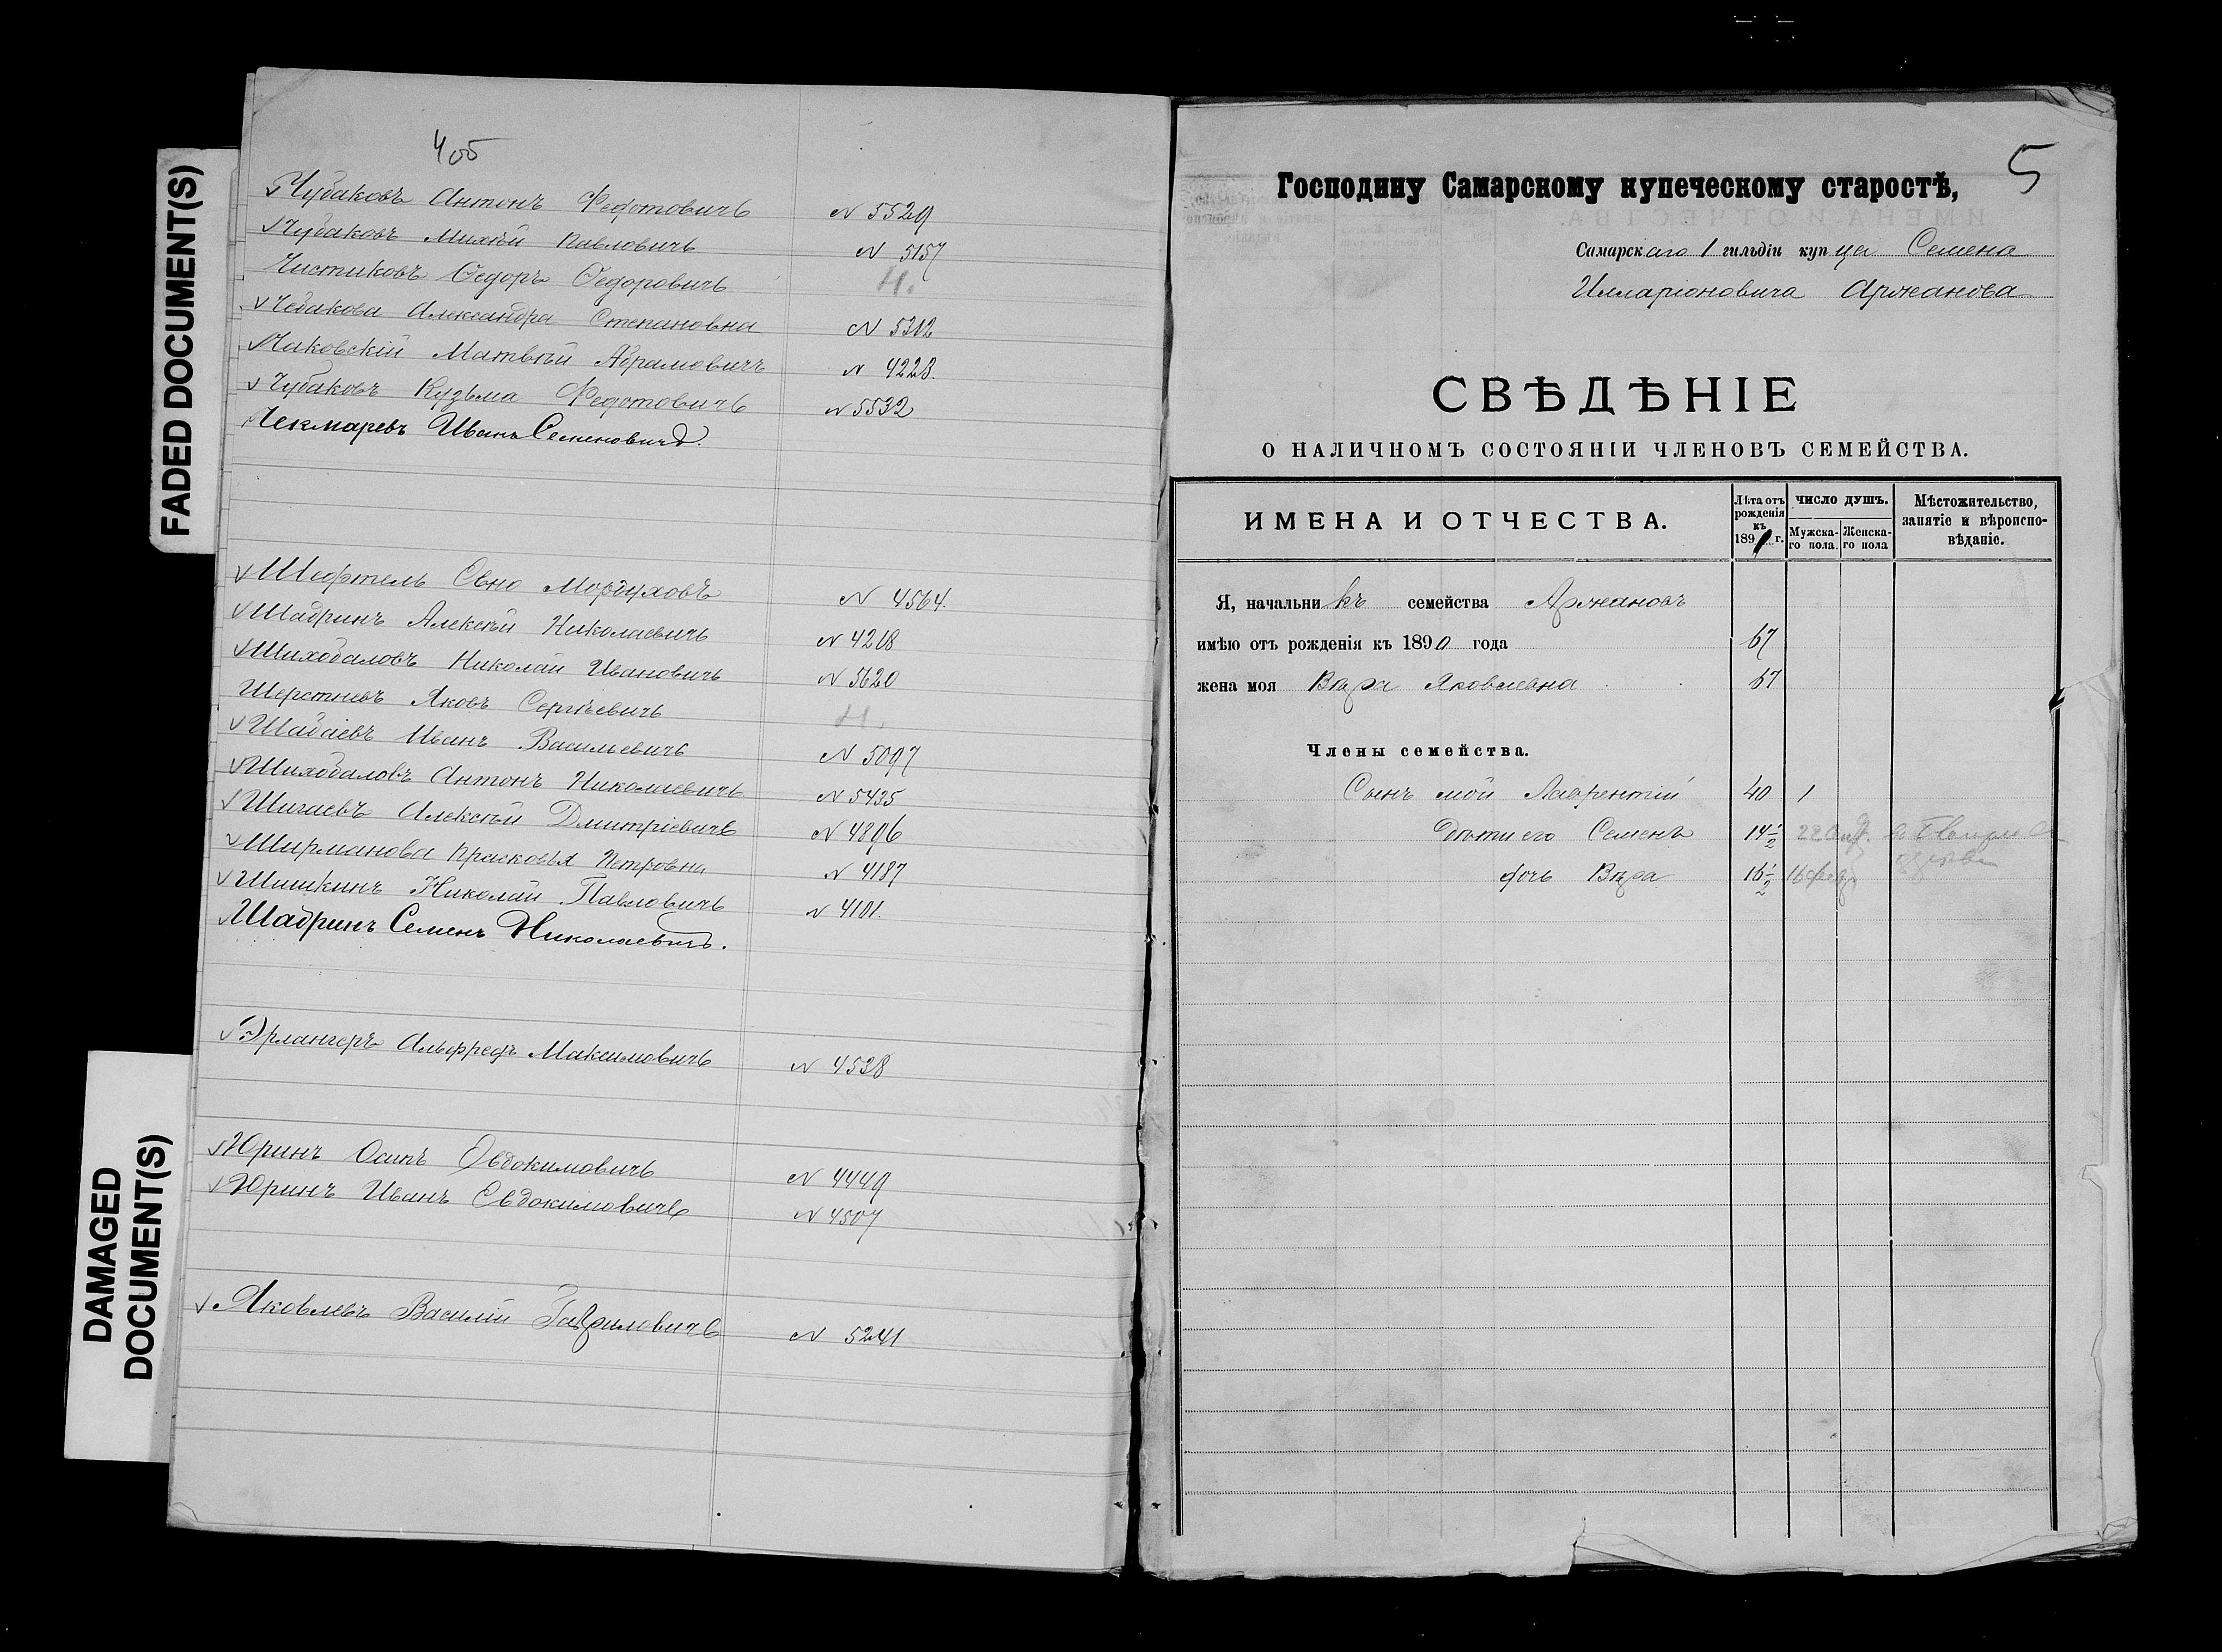 FADED DOCUMENT(S)
DAMAGED
DOCUMENT(S)
405
Чубаковъ Антонъ Федотовичъ N 5529
Чубаковъ Михѣй Павловичъ N 5157
Чистиковъ Ѳедоръ Ѳедоровичъ Н.
Чебакова Александра Степановна N 5312
Чаковскій Матвѣй Абрамовичъ N 4228.
Чубаковъ Кузьма Федотовичъ N 5532
Чекмаревъ Иванъ Семеновичъ.
Шефтель Овно Мордуховъ N 4564.
Шадринъ Алексѣй Николаевичъ N 4218
Шихобаловъ Николай Ивановичъ N 5620
Шерстневъ Яковъ Сергѣевичъ Н.
Шабаевъ Иванъ Васильевичъ N 5097
Шихобаловъ Антонъ Николаевичъ N 5435
Шигаевъ Алексѣй Дмитріевичъ N 4896
Ширманова Прасковья Петровна N 4187
Шишкинъ Николай Павловичъ N 4101.
Шадринъ Семенъ Николаевичъ.
Эрлангеръ Альфредъ Максимовичъ N 4538
Юринъ Осипъ Овдокимовичъ N 4449
Юринъ Иванъ Овдокимовичъ N 4507
Яковлевъ Василій Гавриловичъ N 5241
5
Господину Самарскому купеческому старостѣ,
Самарскаго 1 гильдіи купца Семена
Илларіоновича Аржанова
СВѢДѢНІЕ
О НАЛИЧНОМЪ СОСТОЯНІИ ЧЛЕНОВЪ СЕМЕЙСТВА.
ИМЕНА И ОТЧЕСТВА.
Лѣта отъ рожденія къ 1891 г.
ЧИСЛО ДУШЪ.
Мужскаго пола.
Женскаго пола
Мѣстожительство, занятіе и вѣроисповѣданіе.
Я, начальникъ семейства Аржановъ
имѣю отъ рожденія къ 1890 года 67
жена моя Вѣра Яковлевна 67
Члены семейства.
Сынъ мой Лаврентій 40 1
Дѣти его Семенъ 14½
дочь Вѣра 16½